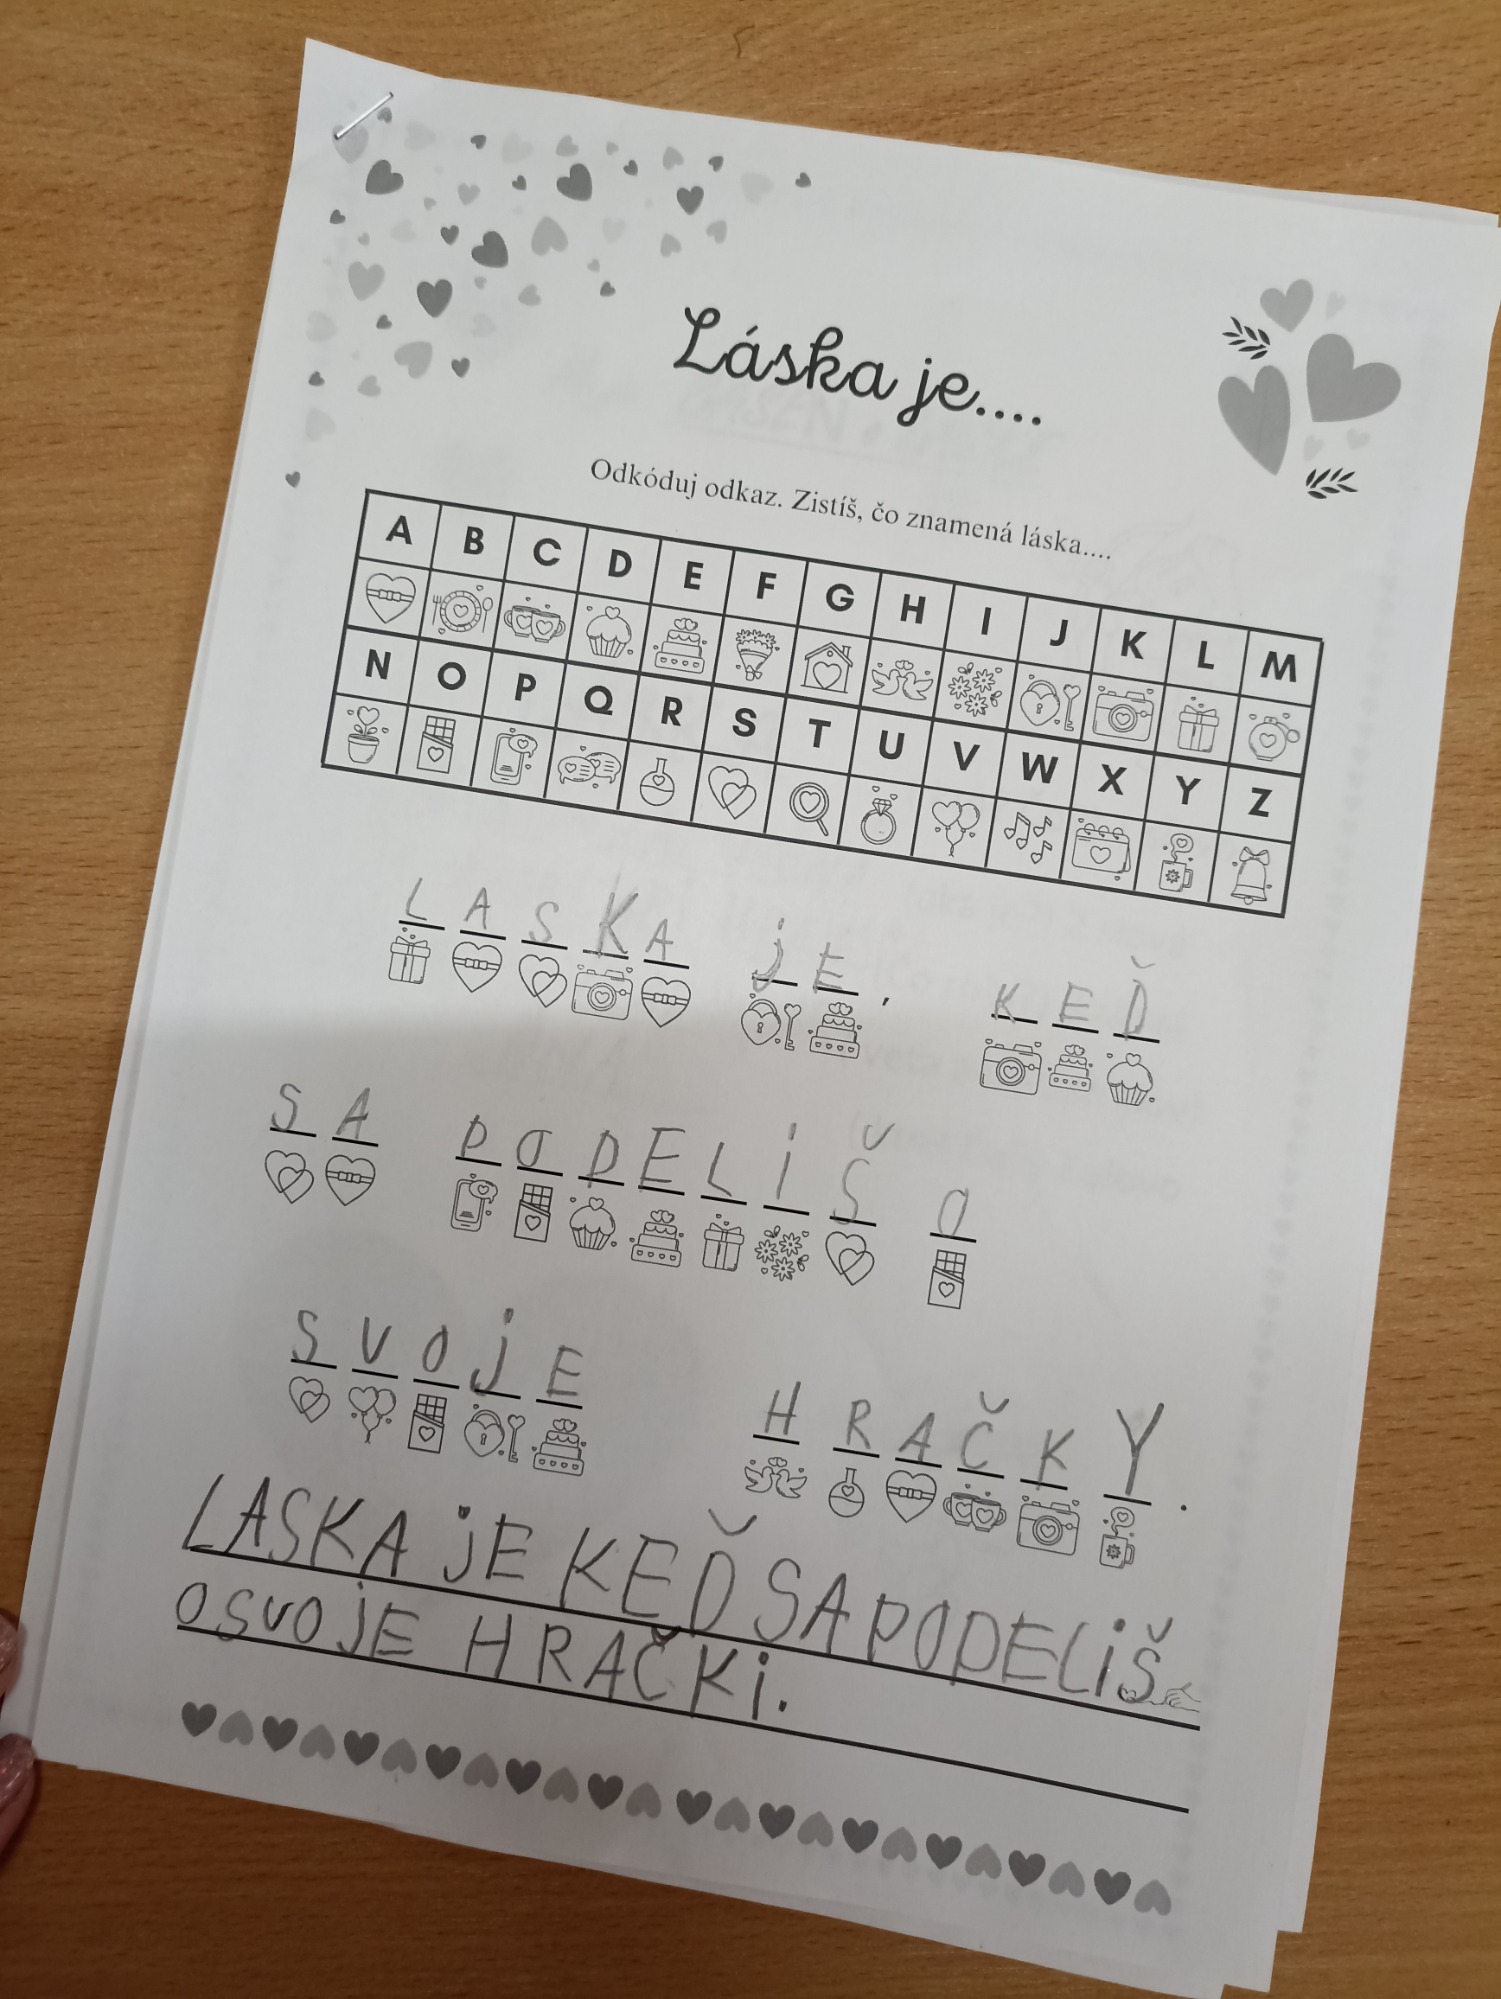 Láska je....
Odkóduj odkaz. Zistíš, čo znamená láska....
A B C D E F G H I J K L M
N O P Q R S T U V W X Y Z
LASKA jE, KEĎ
SA PODELiŠ O
SVOjE HRAČKY.
LASKA jE KEĎ SA PODELiŠ
O SVOjE HRAČKi.